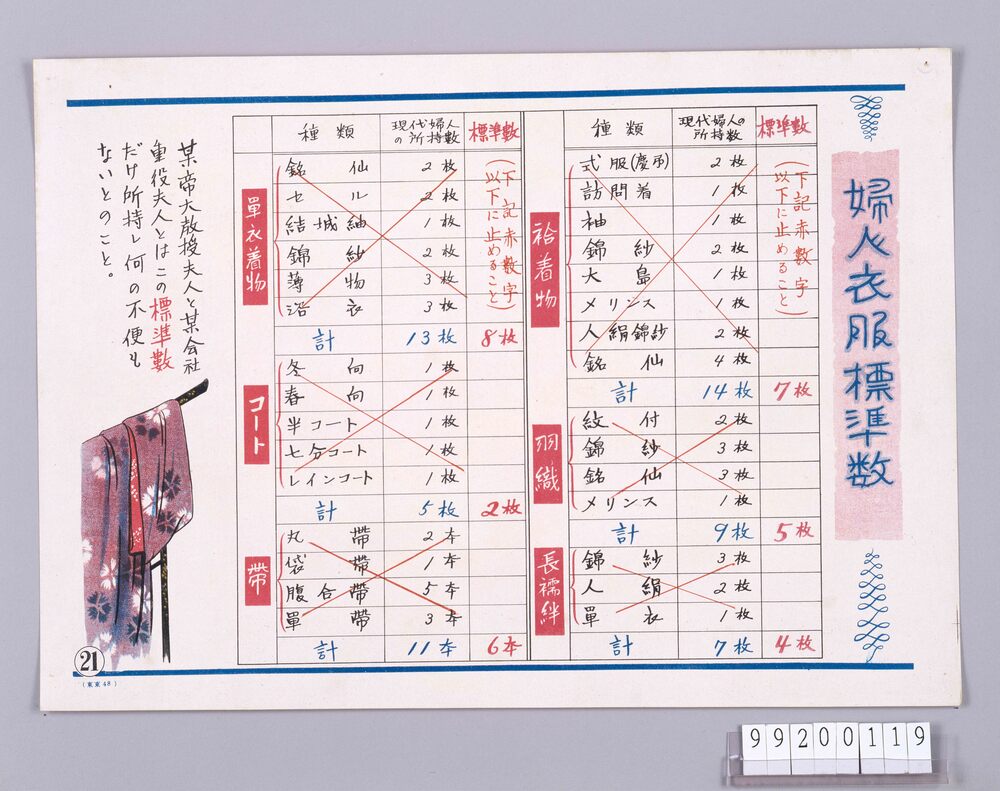 婦人衣服標準数
種類 現代婦人の所持数 標準数
(下記赤数字以下に止めること)
袷着物
式服(慶弔) 2枚
訪問着 1枚
袖 1枚
錦紗 2枚
大島 1枚
メリンス 1枚
人絹錦紗 2枚
銘仙 4枚
計 14枚 7枚
羽織
紋付 2枚
錦紗 3枚
銘仙 3枚
メリンス 1枚
計 9枚 5枚
長襦袢
錦紗 3枚
人絹 2枚
單衣 1枚
計 7枚 4枚
種類 現代婦人の所持数 標準数
(下記赤数字以下に止めること)
單衣着物
銘仙 2枚
セル 2枚
結城紬 1枚
錦紗 2枚
薄物 3枚
浴衣 3枚
計 13枚 8枚
コート
冬向 1枚
春向 1枚
半コート 1枚
七分コート 1枚
レインコート 1枚
計 5枚 2枚
帶
丸帶 2本
袋帶 1本
腹合帶 5本
單帶 3本
計 11本 6本
某帝大教授夫人と某会社
重役夫人とはこの標準數
だけ所持し何の不便も
ないとのこと。
21
(東東48)
99200119